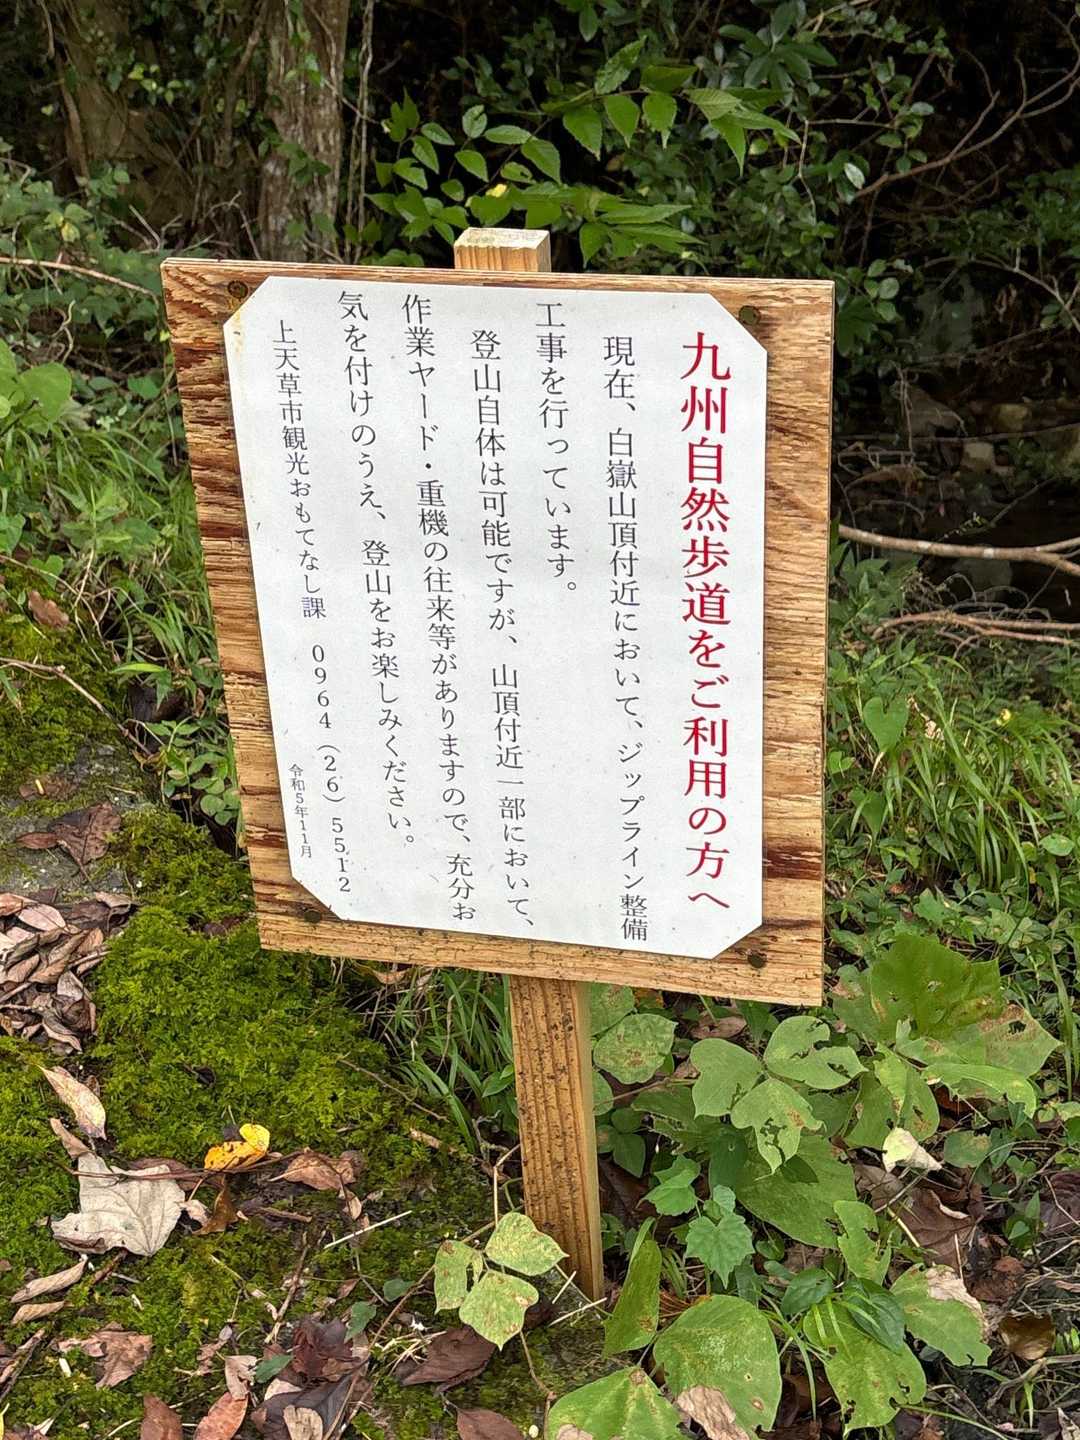 九州自然歩道をご利用の方へ
現在、白嶽山頂付近において、ジップライン整備
工事を行っています。
登山自体は可能ですが、山頂付近一部において、
作業ヤード・重機の往来等がありますので、充分お
気を付けのうえ、登山をお楽しみください。
上天草市観光おもてなし課 0964(26)5512
令和5年11月